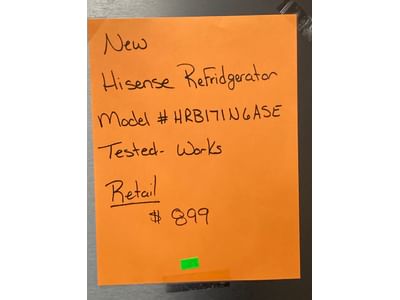 New
Hisense Refridgerator
Model # HRB171N6ASE
Tested- Works
Retail
$ 899